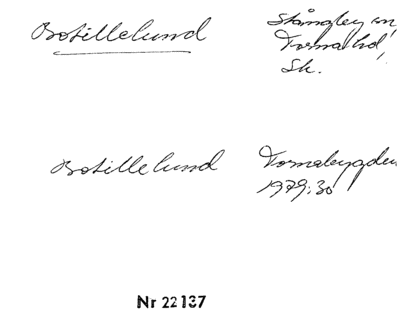 Botillelund
Stångby sn,
Torna hd,
Sk.
Botillelund
Tornabygden
1979:30
Nr 22137